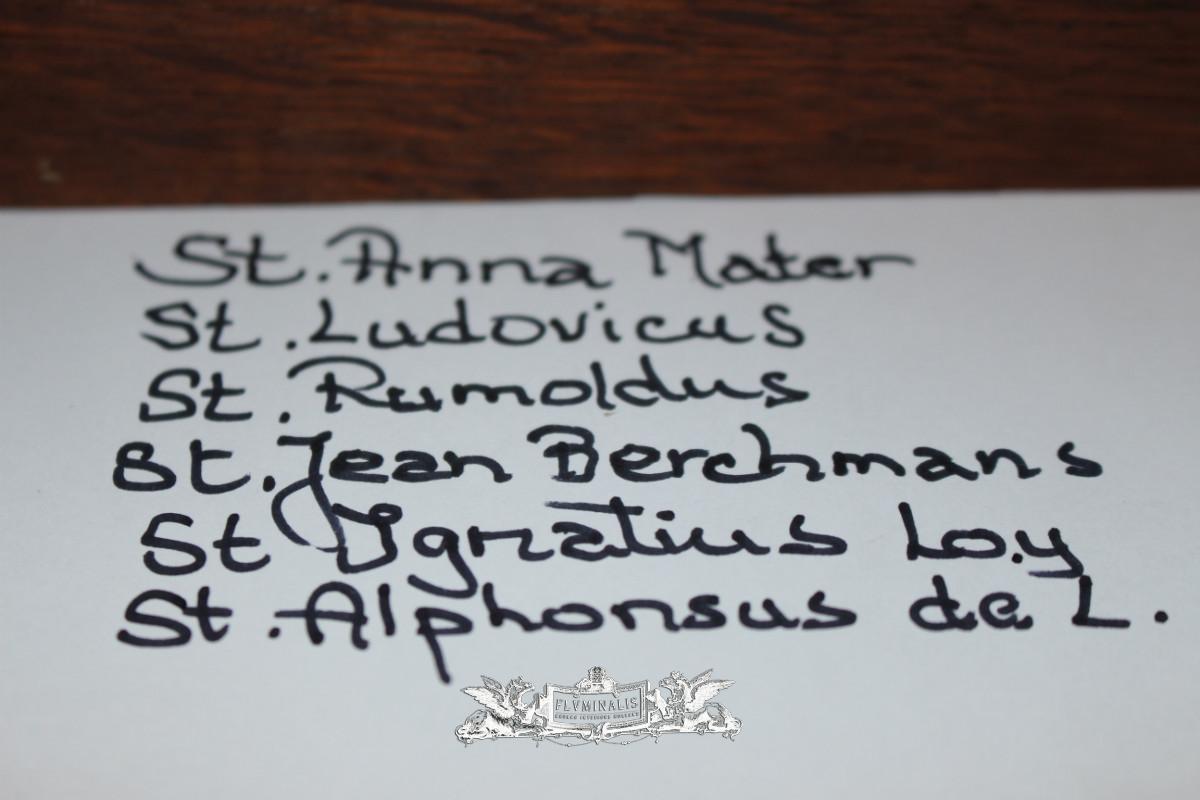 St. Anna Mater
St. Ludovicus
St. Rumoldus
St. Jean Berchmans
St Ignatius Loy
St. Alphonsus de L.
FLVMINALIS